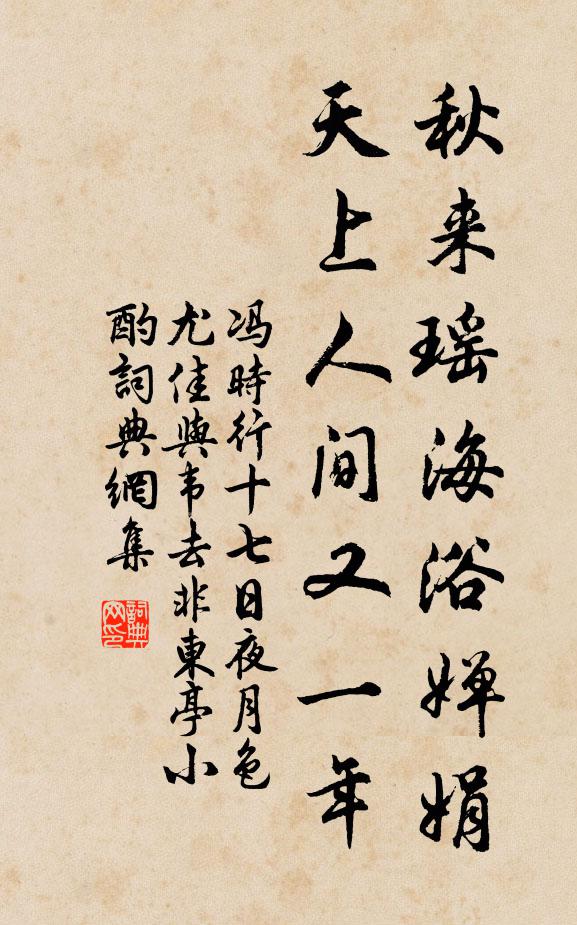 秋来瑶海浴婵娟
天上人间又一年
冯時行十七日夜月色
尤佳與韦去非東亭小
酌詞典網集
詞典
网印